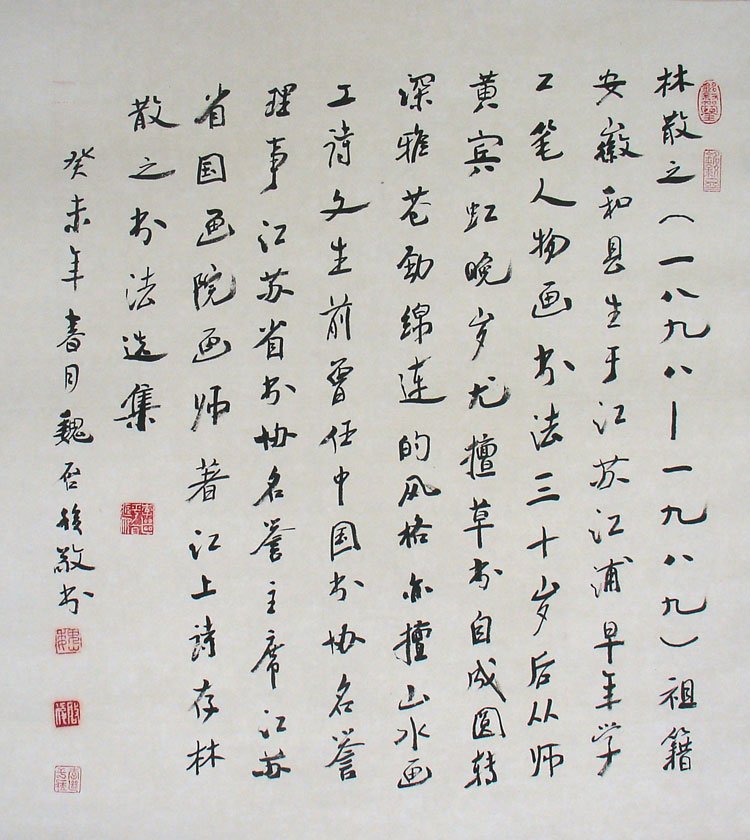 林散之（一八九八—一九八九）祖籍
安徽和县生于江苏江浦早年学
工笔人物画书法三十岁后从师
黄宾虹晚岁尤擅草书自成圆转
深雅苍劲绵连的风格亦擅山水画
工詩文生前曾任中国书协名誉
理事江苏省书协名誉主席江苏
省国画院画师著江上詩存林
散之书法选集
癸未年春月魏启後敬书